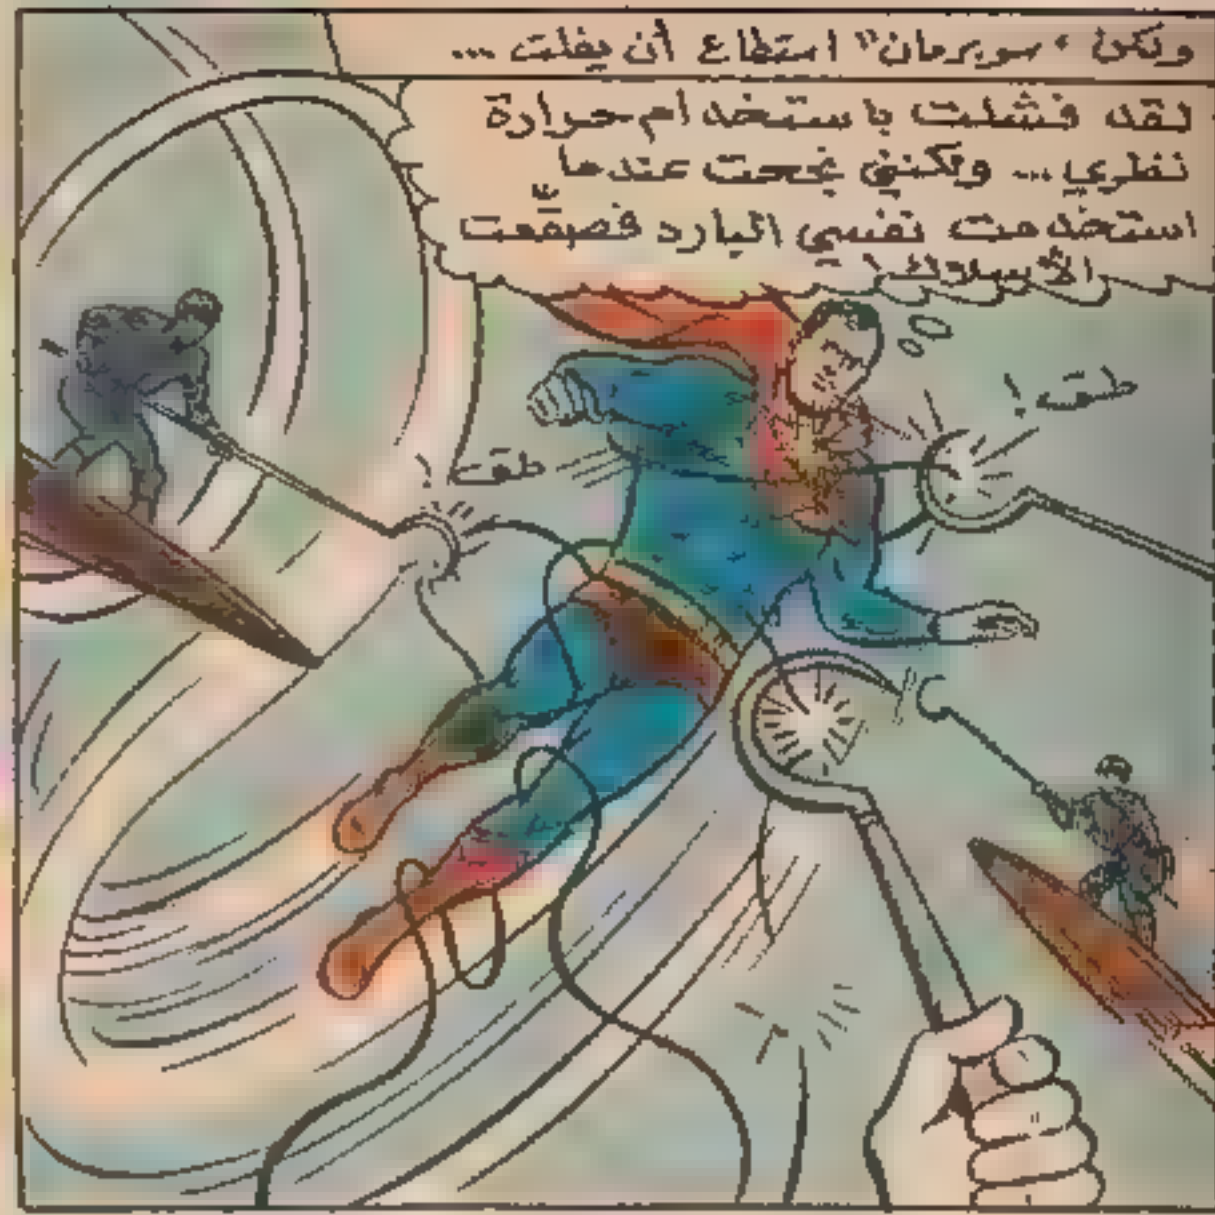 ولكن "سوبرمان" استطاع أن يفلت ...
لقد فشلت باستخدام حرارة
نظري ... ولكنني نجحت عندما
استخدمت نفسي البارد فصقّعت
الأسلاك !
طق !
طق !